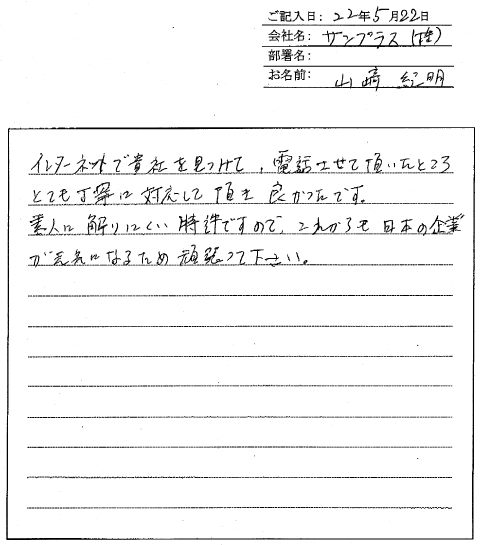 ご記入日: 22年5月22日
会社名: サンプラス(株)
部署名:
お名前: 山崎 紀明
インターネットで貴社を見つけて、電話させて頂いたところ
とても丁寧に対応して頂き良かったです。
素人に解りにくい特許ですので、これからも日本の企業
が元気になるため頑張って下さい。